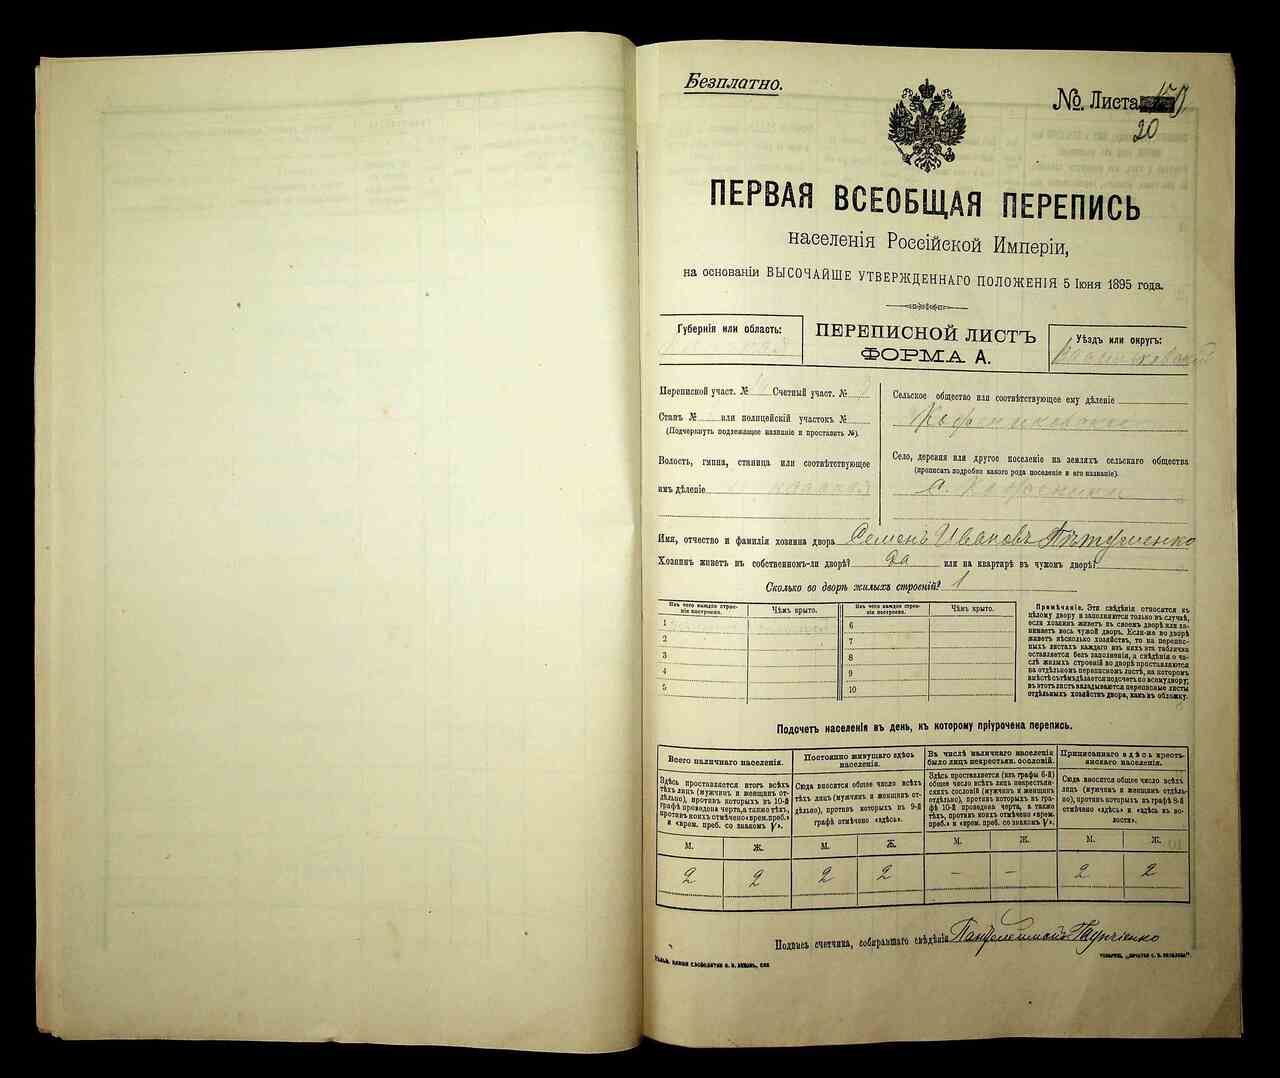 Безплатно.
№ Листа
20
ПЕРВАЯ ВСЕОБЩАЯ ПЕРЕПИСЬ
населенія Россійской Имперіи,
на основаніи ВЫСОЧАЙШЕ УТВЕРЖДЕННАГО ПОЛОЖЕНІЯ 5 Іюня 1895 года.
Губернія или область:
ПЕРЕПИСНОЙ ЛИСТЪ
ФОРМА А.
Уѣздъ или округъ:
Переписной участ. № Счетный участ. №
Станъ № или полицейскій участокъ №
(Подчеркнуть подлежащее названіе и проставить №).
Волость, гмина, станица или соотвѣтствующее
имъ дѣленіе
Сельское общество или соотвѣтствующее ему дѣленіе
Село, деревня или другое поселеніе на земляхъ сельскаго общества
(прописать подробно какого рода поселеніе и его названіе).
с.
Имя, отчество и фамилія хозяина двора Семенъ Ивановъ
Хозяинъ живетъ въ собственномъ-ли дворѣ? да или на квартирѣ въ чужомъ дворѣ?
Сколько во дворѣ жилыхъ строеній? 1
Изъ чего каждое строе-
ніе построено.
Чѣмъ крыто.
Изъ чего каждое строе-
ніе построено.
Чѣмъ крыто.
1 6
2 7
3 8
4 9
5 10
Примѣчаніе. Эти свѣдѣнія относятся къ
цѣлому двору и заполняются только въ случаѣ,
если хозяинъ живетъ въ своемъ дворѣ или за-
нимаетъ весь чужой дворъ. Если-же во дворѣ
живетъ нѣсколько хозяйствъ, то на перепис-
ныхъ листахъ каждаго изъ нихъ эта табличка
оставляется безъ заполненія, а свѣдѣнія о чи-
слѣ жилыхъ строеній во дворѣ проставляются
на отдѣльномъ переписномъ листѣ, на которомъ
вмѣстѣ съ тѣмъ дѣлается подсчетъ по всему двору;
въ этотъ листъ вкладываются переписные листы
отдѣльныхъ хозяйствъ двора, какъ въ обложку.
Подсчетъ населенія въ день, къ которому пріурочена перепись.
Всего наличнаго населенія.
Здѣсь проставляется итогъ всѣхъ
тѣхъ лицъ (мужчинъ и женщинъ от-
дѣльно), противъ которыхъ въ 10-й
графѣ проведена черта, а также тѣхъ,
противъ коихъ отмѣчено «врем. преб.»
и «врем. преб. со знакомъ V».
Постоянно живущаго здѣсь
населенія.
Сюда вносится общее число всѣхъ
тѣхъ лицъ (мужчинъ и женщинъ от-
дѣльно), противъ которыхъ въ 9-й
графѣ отмѣчено «здѣсь».
Въ числѣ наличнаго населенія
было лицъ некрестьян. сословій.
Здѣсь проставляется (изъ графы 6-й)
общее число всѣхъ лицъ некрестьян-
скихъ сословій (мужчинъ и женщинъ
отдѣльно), противъ которыхъ въ гра-
фѣ 10-й проведена черта, а также
тѣхъ, противъ коихъ отмѣчено «врем.
преб.» и «врем. преб. со знакомъ V».
Приписаннаго здѣсь кресть-
янскаго населенія.
Сюда вносится общее число всѣхъ
лицъ (мужчинъ и женщинъ отдѣль-
но), противъ которыхъ въ графѣ 8-й
отмѣчено «здѣсь» и «здѣсь въ во-
лости».
М. Ж. М. Ж. М. Ж. М. Ж.
2 2 2 2 — — 2 2
Подпись счетчика, собиравшаго свѣдѣнія